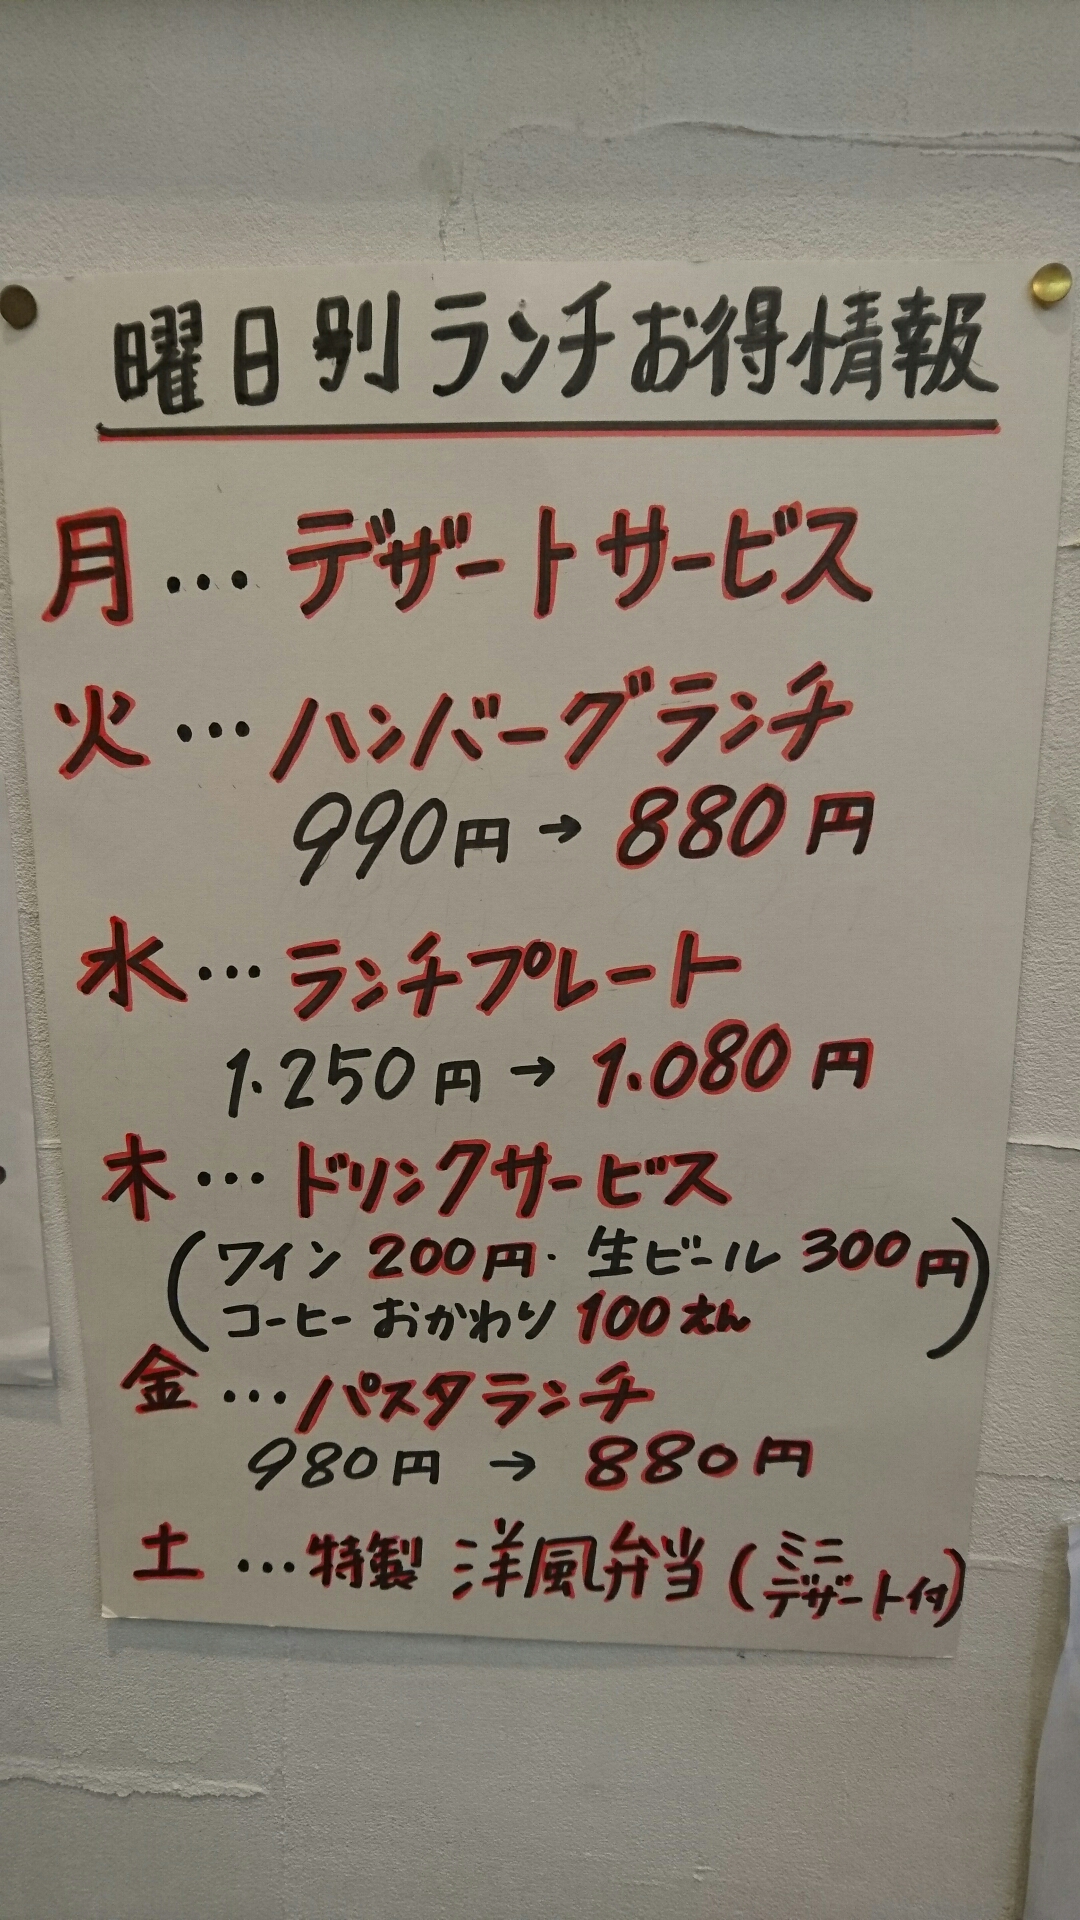 曜日別ランチお得情報
月…デザートサービス
火…ハンバーグランチ
990円→880円
水…ランチプレート
1.250円→1.080円
木…ドリンクサービス
(ワイン200円・生ビール300円
コーヒーおかわり100えん)
金…パスタランチ
980円→880円
土…特製 洋風弁当(ミニ
デザート付)